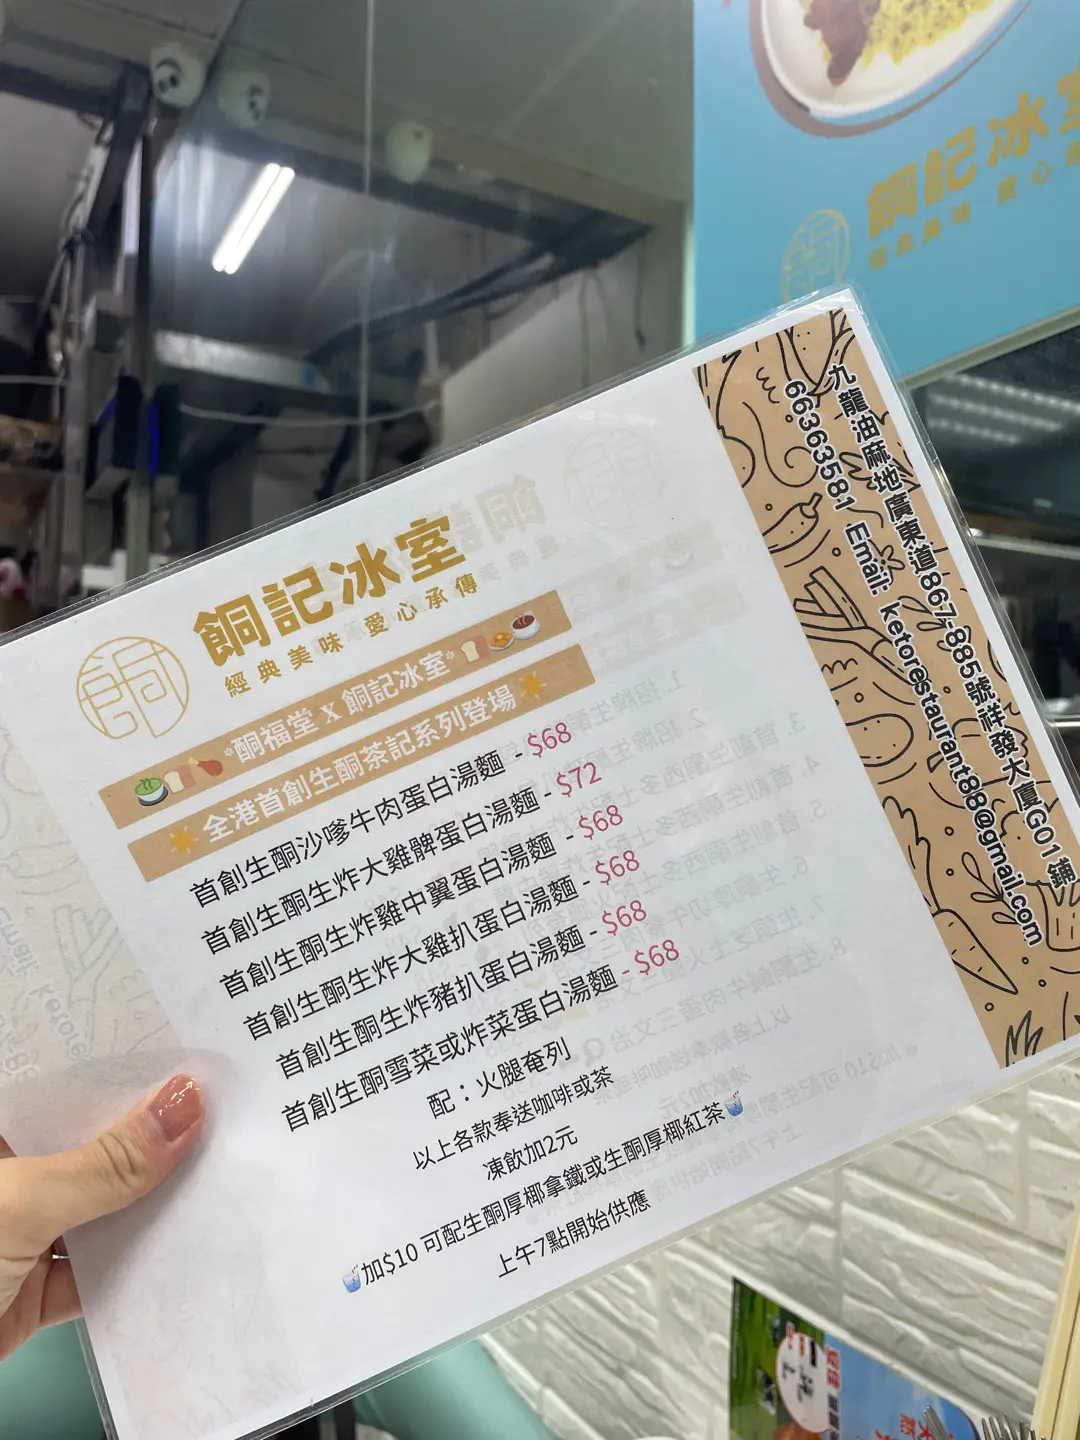 餇記冰室
餇記冰室
經典美味 愛心承傳
*酮福堂 X 餇記冰室*
全港首創生酮茶記系列登場
首創生酮沙嗲牛肉蛋白湯麵 - $68
首創生酮生炸大雞髀蛋白湯麵 - $72
首創生酮生炸雞中翼蛋白湯麵 - $68
首創生酮生炸大雞扒蛋白湯麵 - $68
首創生酮生炸豬扒蛋白湯麵 - $68
首創生酮雪菜或炸菜蛋白湯麵 - $68
配：火腿奄列
以上各款奉送咖啡或茶
凍飲加2元
加$10 可配生酮厚椰拿鐵或生酮厚椰紅茶
上午7點開始供應
九龍油麻地廣東道867-885號祥發大廈G01鋪
66363581 Email: ketorestaurant88@gmail.com